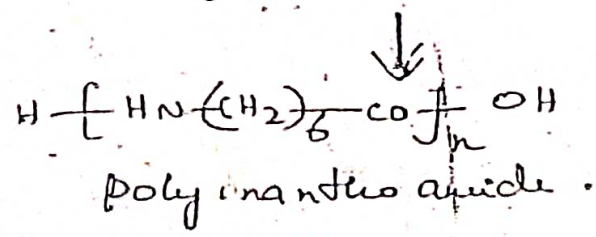 H-[HN-(CH2)6-CO]n-OH
polyinantho amide.